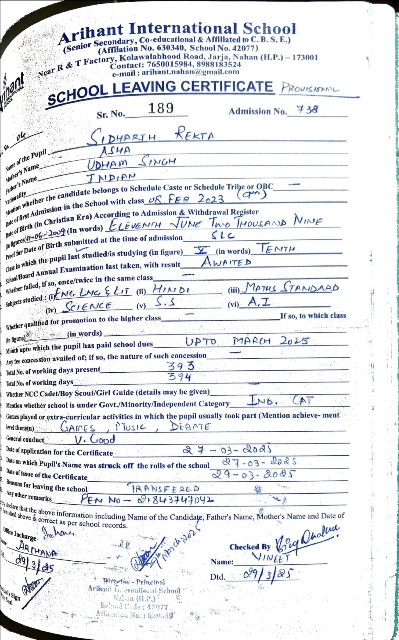 Arihant International School
(Senior Secondary, Co-educational & Affiliated to C. B. S. E.)
(Affilation No. 630340, School No. 42077)
Near R & T Factory, Kolawalabhood Road, Jarja, Nahan (H.P.) – 173001
Contact: 7650015984, 8988183524
e-mail : arihant.nahan@gmail.com
SCHOOL LEAVING CERTIFICATE PROVISIONAL
Sr. No. 189 Admission No. 738
Name of the Pupil SIDHARTH REKTA
Mother's Name ASHA
Father's Name UDHAM SINGH
Nationality INDIAN
Mention whether the candidate belongs to Schedule Caste or Schedule Tribe or OBC —
Date of first Admission in the School with class 08 FEB 2023
Date of Birth (In Christian Era) According to Admission & Withdrawal Register
(In figures) 11-06-2009 (In Words) ELEVENTH JUNE TWO THOUSAND NINE
Proof for Date of Birth submitted at the time of admission SLC
Class in which the pupil last studied/is studying (in figure) X (in words) TENTH
School/Board Annual Examination last taken, with result AWAITED
Whether failed, if so, once/twice in the same class —
Subjects studied : (i) ENG. LNG & LIT (ii) HINDI (iii) MATHS STANDARD
(iv) SCIENCE (v) S.S (vi) A.I
Whether qualified for promotion to the higher class — If so, to which class
(in figure) (in words)
Month upto which the pupil has paid school dues UPTO MARCH 2025
Any fee concession availed of; if so, the nature of such concession —
Total No. of working days present 393
Total No. of working days 394
Whether NCC Cadet/Boy Scout/Girl Guide (details may be given) —
Mention whether school is under Govt./Minority/Independent Category IND. CAT
Games played or extra-curricular activities in which the pupil usually took part (Mention achieve- ment
level therein) GAMES, MUSIC, DEBATE
General conduct V. Good
Date of application for the Certificate 27-03-2025
Date on which Pupil's Name was struck off the rolls of the school 27-03-2025
Date of issue of the Certificate 29-03-2025
Reasons for leaving the school TRANSFERED
Any other remarks PEN NO - 21843747042
declare that the above information including Name of the Candidate, Father's Name, Mother's Name and Date of
above & correct as per school records.
Office Incharge
ARCHANA
29/3/25
Checked By
Name: VINEET
Dtd. 29/3/25
Director - Principal
Arihant International School
Nahan (H.P.)
School Code : 42077
Affiliation No. : 630340